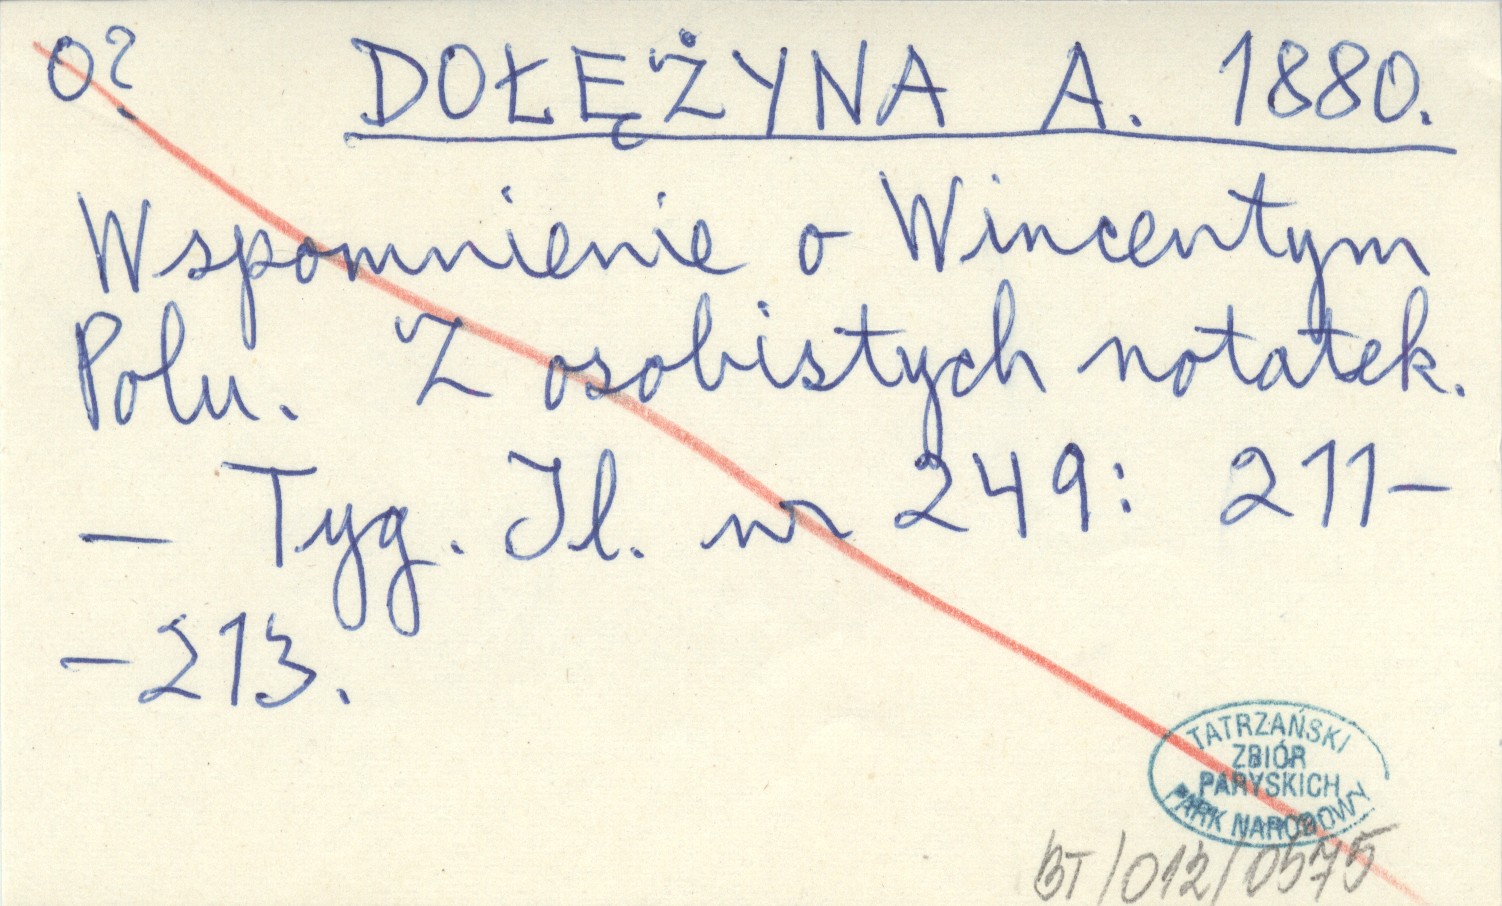 O? DOŁĘŻYNA A. 1880.
Wspomnienie o Wincentym
Polu. Z osobistych notatek.
— Tyg. Il. nr 249: 211-
-213.
TATRZAŃSKI
ZBIÓR
PARYSKICH
PARK NARODOWY
BT/012/0575